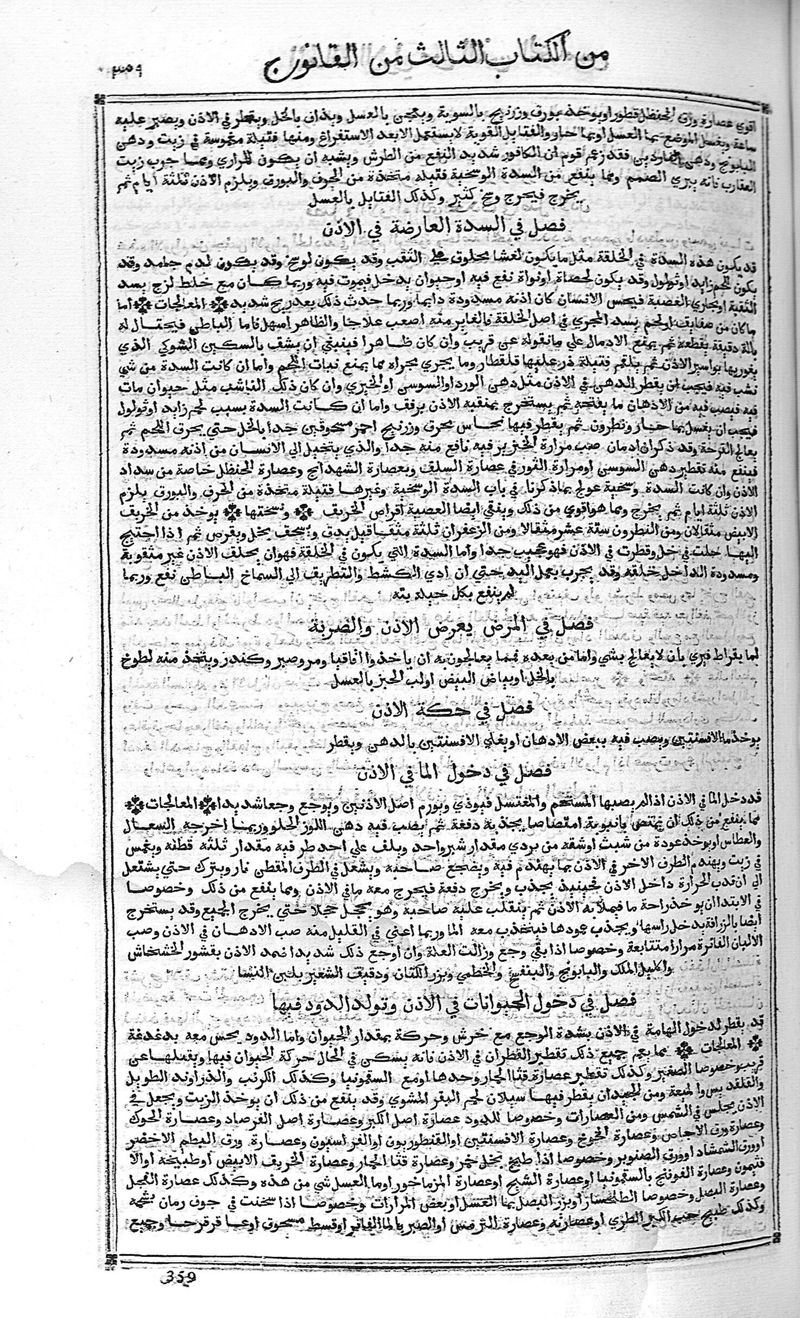 من الكتاب الثالث من القانون ج
٣٥٩
اقوى عصارة ورق الحنظل قطور او يوخذ بورق وزرنيخ بالسوية ويعجن بالعسل ويداف بالخل ويقطر في الاذن ويصبر عليه
ساعة ويغسل الموضع بما العسل او بما حار والفتايل القوية لا يستعمل الا بعد الاستفراغ ومنها فتيلة مغموسة في زيت ودهن
فقد زعم قوم ان الكافور شديد النفع من الطرش ويشبه ان يكون المراري ومما جرب زيت
العقارب فانه يبري الصمم ومما ينفع من السدة الوسخية فتيلة متخذة من الحرف والبورق ويلزم الاذن ثلثة ايام ثم
يخرج فيخرج وسخ كثير وكذلك الفتايل بالعسل
فصل في السدة العارضة في الاذن
قد يكون هذه السدة في الخلقة مثل ما يكون لغشا مخلوق على الثقب وقد يكون لوسخ وقد يكون لدم جامد وقد
يكون للحم زايد او ثولول وقد يكون لحصاة او نواة نقع فيه او حيوان يدخل فيموت فيه وربما كان مع خلط لزج يسد
الثقبة او مجاري العصبة فيحس الانسان كان اذنه مسدودة دايما وربما حدث ذلك بعد ريح شديد المعالجات اما
ما كان من صفايف او لحم يسد المجري في اصل الخلقة فالغاير منه اصعب علاجا والظاهر اسهل فاما الباطن فيحتال له
بالة دقيقة يقطعه ثم يمنع الادمال على ما نقوله عن قريب وان كان ظاهرا فينبغي ان يشق بالسكين الشوكي الذي
يغور بها بواسير الاذن ثم يلقم فتيلة ذر عليها قلقطار وما يجري مجراه مما يمنع نبات اللحم واما ان كانت السدة من شي
نشب فيه فيجب ان يقطر الدهن في الاذن مثل دهن الورد او السوسن او الخيري وان كان ذلك الناشب مثل حيوان مات
فيه فيصب فيه من الادهان ما يفتحه ثم يستخرج بمنقية الاذن برفق واما ان كانت السدة بسبب لحم زايد او ثولول
فيجب ان يغسل بما حار ونطرون ثم يقطر فيها نحاس محرق وزرنيخ احمر مسحوقين جدا بالخل حتي يحرق اللحم ثم
يعالج القرحة وقد ذكر ان ادمان صب مرارة الخنزير فيه نافع منه جدا والذي يتخيل الي الانسان من اذنه مسدودة
فينفع منه تقطير دهن السوسن او مرارة الثور في عصارة السلق وبعصارة الشهدانج وعصارة الحنظل خاصة من سداد
الاذن وان كانت السدة وسخية عولج بما ذكرنا في باب السدة الوسخية وغيرها فتيلة متخذة من الحرف والبورق يلزم
الاذن ثلثة ايام ثم يخرج ومما هو اقوي من ذلك وينقي ايضا العصبة اقراص الخريق ونسختها يوخذ من الخريق
الابيض مثقالان ومن النطرون ستة عشر مثقالا ومن الزعفران ثلثة مثقاقيل يدق ويسحق بخل ويقرص ثم اذا احتيج
اليها حلت في خل وقطرت في الاذن فهو عجيب جدا واما السدة التي يكون في الخلقة فهو ان يخلق الاذن غير مثقوبة
ومسدودة الداخل خلقة وقد يجرب بعمل اليد حتي ان ادي الكشط والتطريق الي السماخ الباطن نفع وربما
لم ينفع بكل حيلة بته
فصل في المرض يعرض الاذن والضربة
اما بقراط فيري بان لا يعالج بشي واما من بعده فمما يعالجون به ان ياخذوا اقاقيا ومر وصبر وكندر ويتخذ منه لطوخ
بالخل او بياض البيض او لب الخبز بالعسل
فصل في حكة الاذن
يوخذ ما الافسنتين ويصب فيه ببعض الادهان او يغلي الافسنتين بالدهن ويقطر
فصل في دخول الما في الاذن
قد دخل الما في الاذن اذا لم يصبها المستحم والمغتسل فيوذي ويورم اصل الاذنين ويوجع وجعا شديدا المعالجات
مما ينفع من ذلك ان يمتص بانبوبة امتصاصا يجذبه دفعة ثم يصب فيه دهن اللوز الحلو وربما اخرجه السعال
والعطاس او يوخذ عودة من شبث او شقة من بردي مقدار شبر واحد ويلف علي احد طرفيه مقدار ثلثة قطنه ويغمس
في زيت ويهندم الطرف الاخر في الاذن بما يهندم فيه ويضجع صاحبه ويشعل في الطرف المقطن نار ويترك حتي يشتعل
الي ان تدب الحرارة داخل الاذن فحينيذ يجذب ويخرج دفعة فيخرج معه ما في الاذن ومما ينفع من ذلك وخصوصا
في الابتدا ان يوخذ راحة ما فيملا به الاذن ثم ينقلب عليه صاحبه وهو يحجل حجلا حتي يخرج الجميع وقد يستخرج
ايضا بالزراقة يدخل راسها ويجذب عودها فينجذب معه الما وربما اغني في القليل منه صب الادهان في الاذن وصب
الالبان الفاترة مرارا متتابعة وخصوصا اذا بقي وجع وزالت العلة وان اوجع ذلك شديدا ضمد الاذن بقشور الخشخاش
واكليل الملك والبابونج والبنفسج والخطمي وبزر الكتان ودقيق الشعير بلبن النسا
فصل في دخول الحيوانات في الاذن وتولد الدود فيها
قد يقطر لدخول الهامة في الاذن بشدة الوجع مع خرش وحركة بمقدار الحيوان واما الدود يحس معه بدغدغة
المعالجات مما يعم جميع ذلك تقطير القطران في الاذن فانه يسكن في الحال حركة الحيوان فيها ويقتلها عن
قريب وخصوصا الصغير وكذلك تقطير عصارة قثا الحمار وحدها او مع السقمونيا وكذلك الكرنب والزراوند الطويل
ومن الجيد ان يقطر فيها سيلان لحم البقر المشوي وقد ينفع من ذلك ان يوخذ الزيت ويجعل في
الاذن يجلس في الشمس ومن العصارات وخصوصا للدود عصارة اصل الكبر وعصارة اصل الفرصاد وعصارة الحوك
وعصارة ورق الاجاص وعصارة الخوخ وعصارة الافسنتين او القنطوريون او الفراسيون وعصارة ورق البطم الاخضر
او ورق الشمشاد او ورق الصنوبر وخصوصا اذا طبخ بخل خمر وعصارة قثا الحمار وعصارة الخريق الابيض او طبيخه او الا
فتيمون وعصارة الفوتنج بالسقمونيا او عصارة الشيح او عصارة المرماحوز او ما العسل شي من هذه وكذلك عصارة الفجل
وعصارة البصل وخصوصا او بزر البصل بما العسل او بعض المرارات وخصوصا اذا سخنت في جوف رمان بشحمه
وكذلك طبيخ الكبر الطري او عصارته وعصارة الترمس او الصبر بالما الفاتر او قسط مسحوق او عاقرقرحا وجميع
359